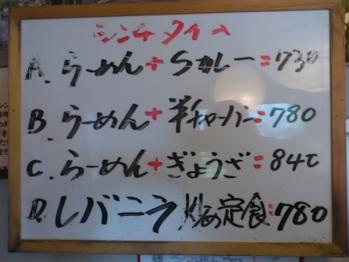 ランチタイム
A. らーめん+Sカレー=730
B. らーめん+半チャーハン=780
C. らーめん+ぎょうざ=840
D. レバニラ炒め定食=780